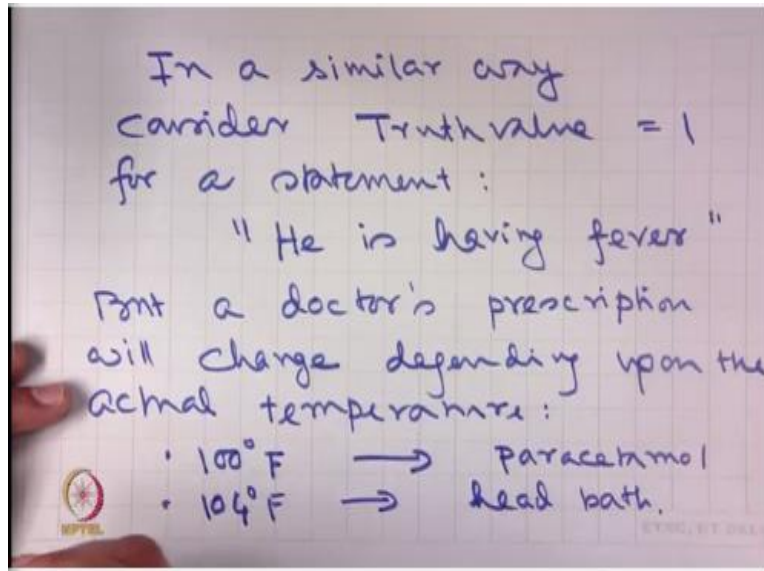 In a similar way
Consider Truth value = 1
for a statement :
"He is having fever"
But a doctor's prescription
will change depending upon the
actual temperature :
· 100°F → paracetamol
· 104°F → head bath.
NPTEL
ETSC, IIT DELHI